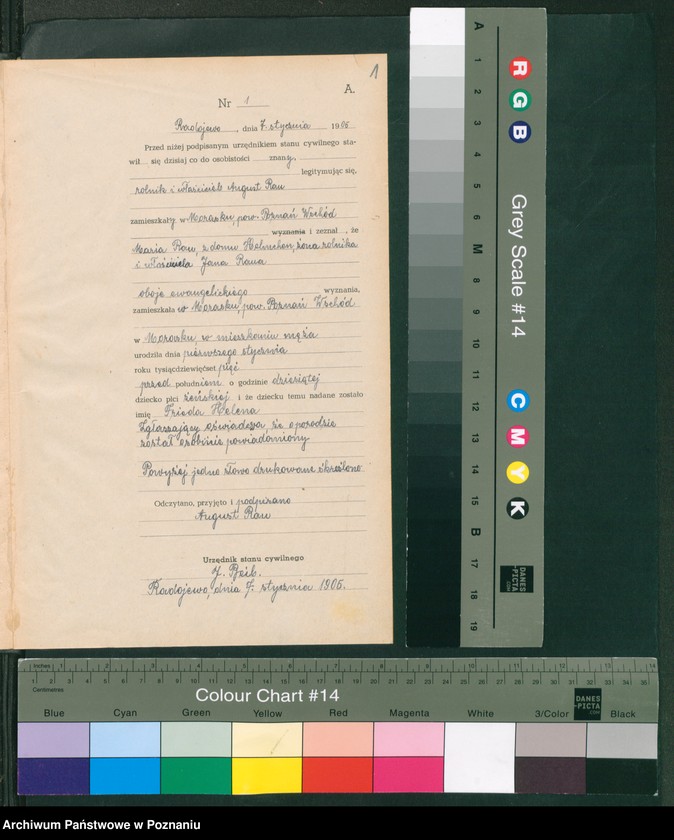 1
A.
Nr 1
Radojewo, dnia 7. stycznia 1905
Przed niżej podpisanym urzędnikiem stanu cywilnego sta-
wił się dzisiaj co do osobistości znany,
legitymując się,
rolnik i właściciel August Rau
zamieszkały w Morasku, pow. Poznań Wschód
wyznania i zeznał, że
Maria Rau, z domu żona rolnika
i właściciela Jana Raua
oboje ewangelickiego wyznania,
zamieszkała w Morasku, pow. Poznań Wschód
w Morasku, w mieszkaniu męża
urodziła dnia pierwszego stycznia
roku tysiącdziewięćset pięć
przed południem o godzinie dziesiątej
dziecko płci żeńskiej i że dziecku temu nadane zostało
imię Frieda Helena
Zgłaszający oświadcza, że o porodzie
został osobiście powiadomiony
Powyżej jedno słowo drukowane skreślono
Odczytano, przyjęto i podpisano
August Rau
Urzędnik stanu cywilnego
Radojewo, dnia 7. stycznia 1905.
A 1 2 3 4 5 6 M 8 9 10 11 12 13 14 15 B 17 18 19
R
G
B
Grey Scale #14
C
M
Y
K
DANES
-PICTA
.COM
Inches 1 2 3 4 5 6 7 8 9 10 11 12 13 14
Centimetres 1 2 3 4 5 6 7 8 9 10 11 12 13 14 15 16 17 18 19 20 21 22 23 24 25 26 27 28 29 30 31 32 33 34 35
Colour Chart #14
DANES
-PICTA
.COM
Blue Cyan Green Yellow Red Magenta White 3/Color Black
Archiwum Państwowe w Poznaniu